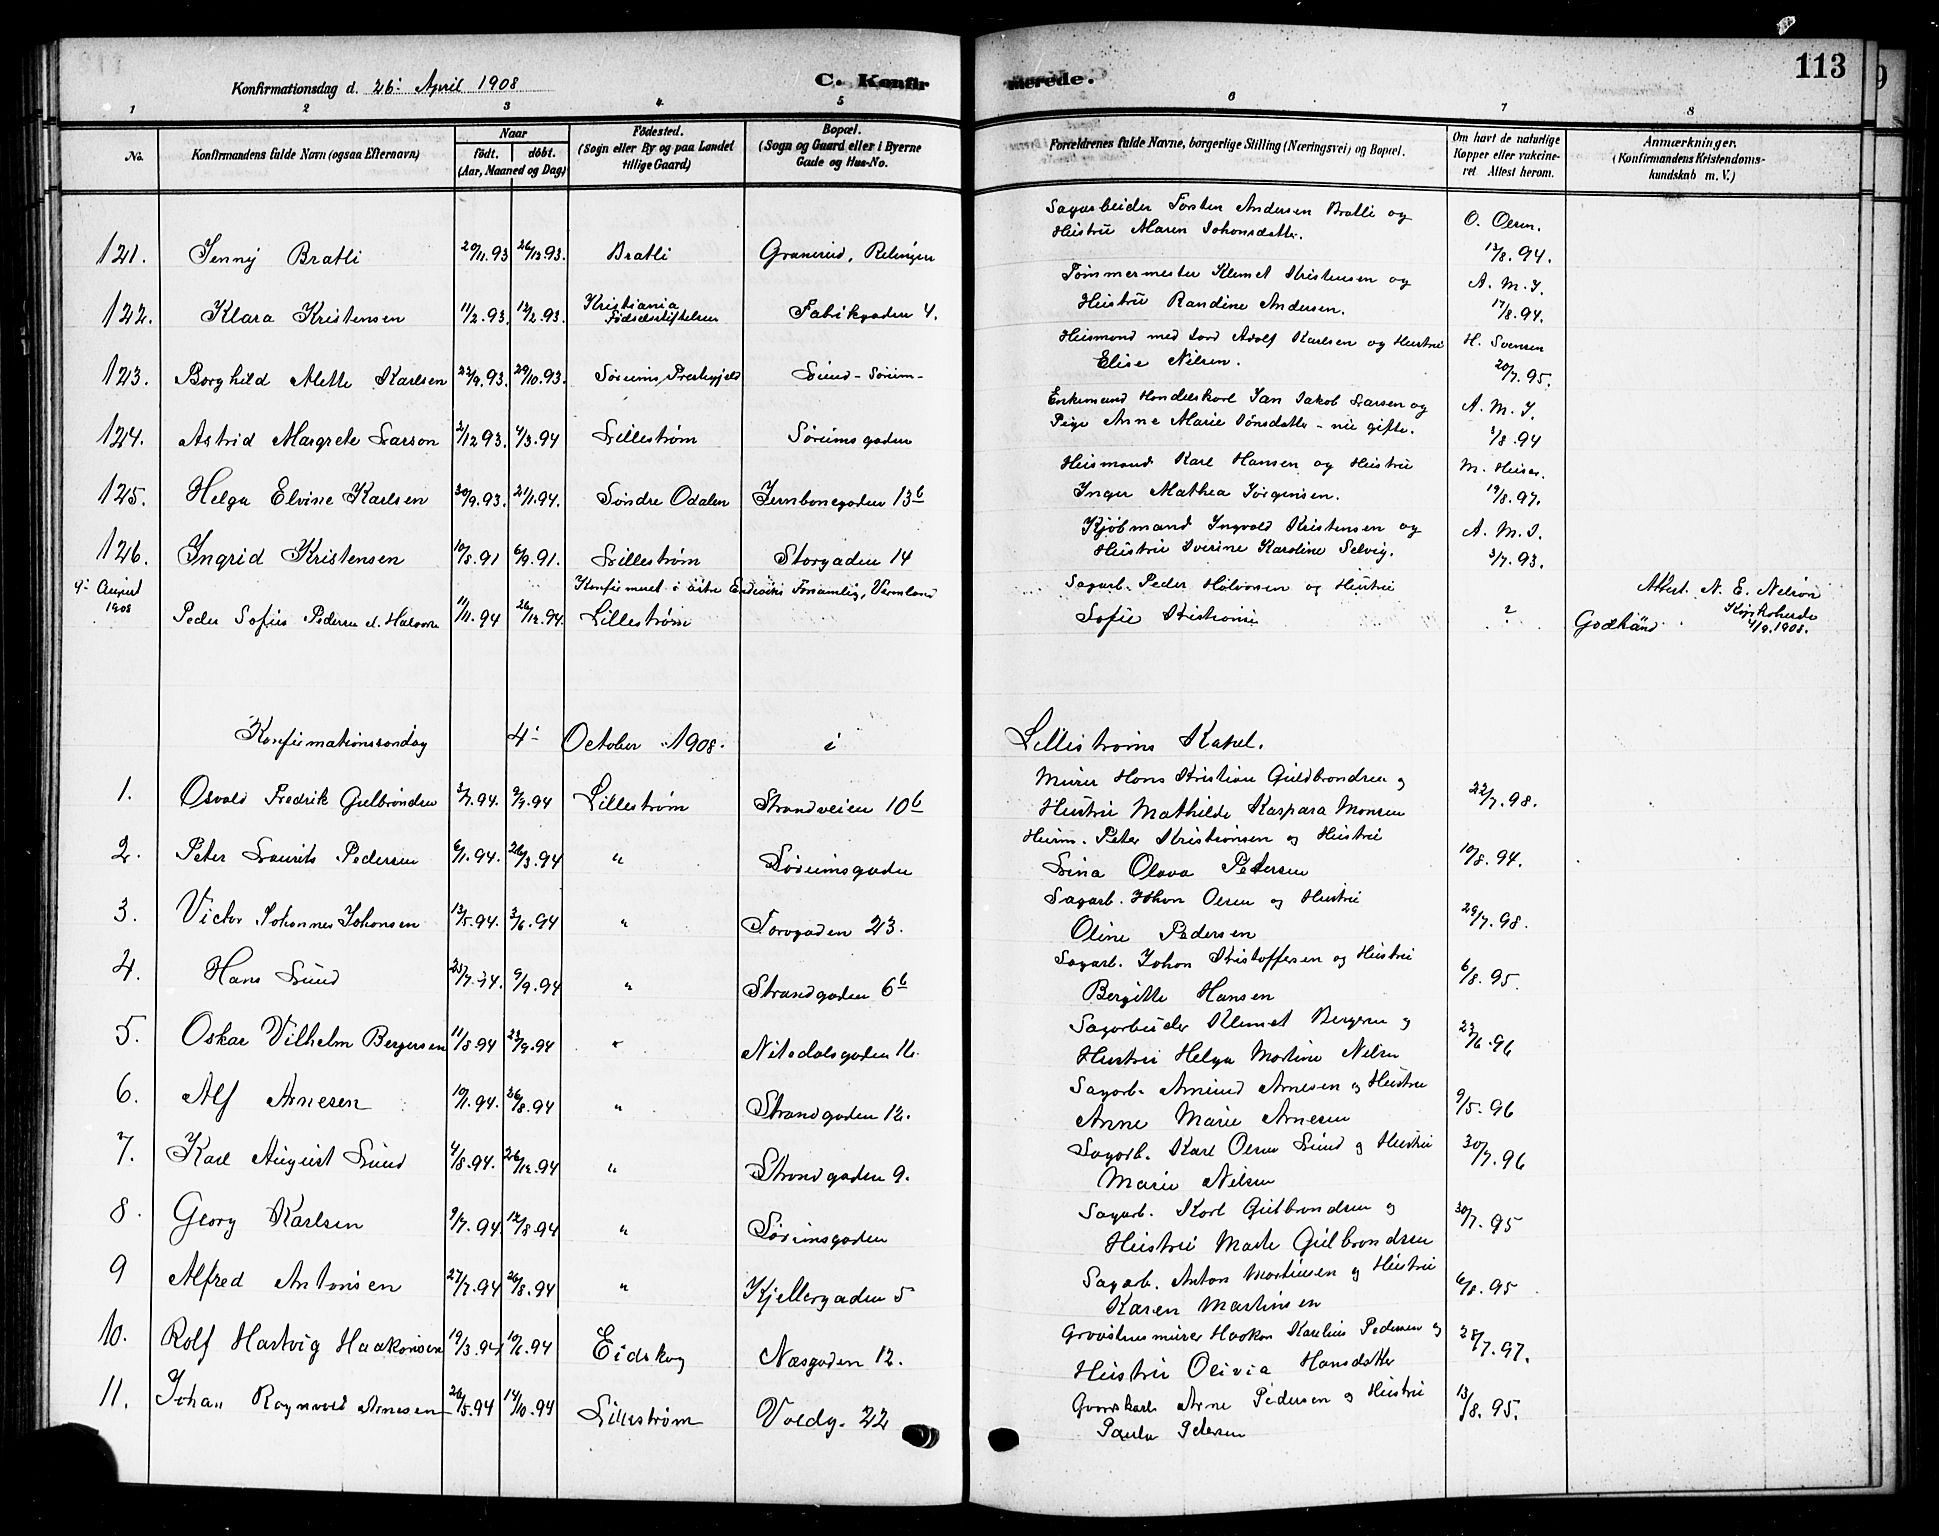 113
Konfirmationsdag d. 26: April 1908
C. Konfirmerede.
1 2 3 4 5 6 7 8
No. Konfirmandens fulde Navn (ogsaa Efternavn) Naar født. døbt. (Aar, Maaned og Dag) Fødested. (Sogn eller By og paa Landet tillige Gaard) Bopæl. (Sogn og Gaard eller i Byerne Gade og Hus-No. Forældrenes fulde Navne, borgerlige Stilling (Næringsvei) og Bopæl. Om havt de naturlige Kopper eller vakcineret Attest herom. Anmærkninger. (Konfirmandens Kristendomskundskab m. V.)
121. Jenny Bratli 20/11.93 26/12.93. Bratli Granerud, Relingen Sagarbeider Torsten Andersen Bratli og Hustru Maren Johansdatter. O. Olsen. 13/8.94.
122. Klara Kristensen 11/2.93. 12/2.93. Kristiania Fødselsstiftelsen Fabrikgaden 4. Tømmermester Klemet Kristensen og Hustru Randine Andersen. A. M. J. 17/8.94.
123. Borghild Alette Karlsen 22/9.93. 29/10.93. Sørums Prestegjeld Lund - Sørum - Husmand med Jord Adolf Karlsen og Hustru Elise Nilsen. H. Svensen 20/7.95.
124. Astrid Margrete Larson 2/12.93. 4/3.94 Lillestrøm Sørumsgaden Enkemand Handelskarl Jan Jakob Larsen og Pige Anne Marie Jonsdatter - nu gifte. A. M. J. 3/8.94
125. Helga Elvine Karlsen 30/9.93. 21/1.94. Søndre Odalen Jernbanegaden 13b Husmand Karl Hansen og Hustru Inger Mathea Jørgensen. 19/8.97.
126. Ingrid Kristensen 10/8.91 6/9.91. Lillestrøm Storgaden 14 Kjøbmand Ingvald Kristensen og Hustru Iverine Karoline Selvig. A. M. J. 3/7.93.
9: August 1908 Konfirmeret i östre Forsamling, Vermland
Peder Sofus Pedersen 11/11.94 26/12.94. Lillestrøm Sagarb. Peder Halvorsen og Hustru Sofie ? Godkänd Attest. N. E. Kyrkoherde 4/9.1908.
Konfirmationssøndag 4: October 1908. i Lillestrøms Kapel.
1. Osvald Fredrik Gulbrandsen 3/7.94. 9/9.94 Lillestrøm Strandveien 10b Murer Hans Kristian Guldbrandsen og Hustru Mathilde Kaspara Monsen 22/7.98.
2. Peter Laurits Pedersen 6/1.94. 26/3.94 " Sørumsgaden Husm. Peter Kristiansen og Hustru Lina Olava Pedersen 10/8.94.
3. Victor Johannes Johansen 13/5.94. 3/6.94 " Torvgaden 23. Sagarb. Johan Olsen og Hustru Oline Pedersen 29/7.98.
4. Hans Lund 25/7.94. 9/9.94 " Strandgaden 6b Sagarb. Johan Kristoffersen og Hustru Bergitte Hansen 6/8.95.
5. Oskar Vilhelm Bergersen 11/8.94 23/9.94 " Nitedalsgaden 16. Sagarbeider Klemet Bergersen og Hustru Helga Martine Nilsen 23/6.96
6. Alf Arnesen 10/7.94. 26/8.94 " Strandgaden 12. Sagarb. Amund Arnesen og Hustru Anne Marie Arnesen 9/5.96
7. Karl August Lund 4/8.94. 26/12.94 " Strandgaden 9. Sagarb. Karl Olsen Lund og Hustru Marie Nilsen 30/7.96
8. Georg Karlsen 9/7.94. 12/8.94 " Sørumsgaden Sagarb. Karl Gulbrandsen og Hustru Marte Gulbrandsen 30/7.95
9 Alfred Antonsen 27/7.94 26/8.94 " Kjellergaden 5 Sagarb. Anton Martinsen og Hustru Karen Martinsen 6/8.95
10. Rolf Hartvig Haakonsen 19/3.94 Eidskog Næsgaden 12. Graastensmurer Haakon Karelius Pedersen og Hustru Olivia Hansdatter 28/7.97.
11. Johan Ragnvald Arnesen 26/5.94 14/10.94 Lillestrøm Voldg. 22 Arne Pedersen og Hustru Paula Petersen 13/8.95.